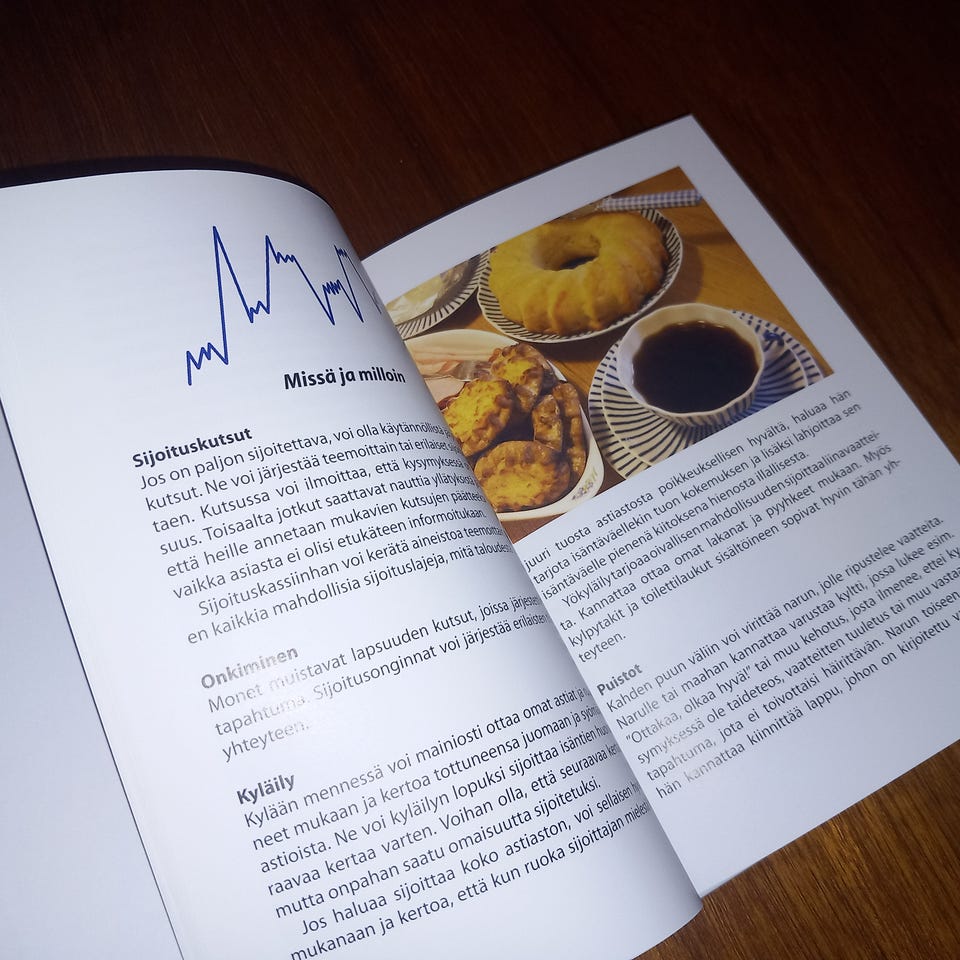 Missä ja milloin
Sijoituskutsut
Jos on paljon sijoitettava, voi olla käytännöllistä
kutsut. Ne voi järjestää teemoittain tai erilaiset
taen. Kutsussa voi ilmoittaa, että kysymyksessä
suus. Toisaalta jotkut saattavat nauttia yllätyksistä
että heille annetaan mukavien kutsujen päätteeksi
vaikka asiasta ei olisi etukäteen informoitukaan.
Sijoituskassiinhan voi kerätä aineistoa teemoittain
en kaikkia mahdollisia sijoituslajeja, mitä
Onkiminen
Monet muistavat lapsuuden kutsut, joissa
tapahtuma. Sijoitusonginnat voi järjestää erilaisten
yhteyteen.
Kyläily
Kylään mennessä voi mainiosti ottaa omat astiat ja
neet mukaan ja kertoa tottuneensa juomaan ja
astioista. Ne voi kyläilyn lopuksi sijoittaa isäntien
raavaa kertaa varten. Voihan olla, että seuraavaa
mutta onpahan saatu omaisuutta sijoitetuksi.
Jos haluaa sijoittaa koko astiaston, voi sellaisen
mukanaan ja kertoa, että kun ruoka sijoittajan
juuri tuosta astiastosta poikkeuksellisen hyvältä, haluaa hän
tarjota isäntäväellekin tuon kokemuksen ja lisäksi lahjoittaa sen
isäntäväelle pienenä kiitoksena hienosta illallisesta.
Yökyläilytarjoaaoivallisenmahdollisuudensijoittaaliinavaattei-
ta. Kannattaa ottaa omat lakanat ja pyyhkeet mukaan. Myös
kylpytakit ja toilettilaukut sisältöineen sopivat hyvin tähän yh-
teyteen.
Puistot
Kahden puun väliin voi virittää narun, jolle ripustelee vaatteita.
Narulle tai maahan kannattaa varustaa kyltti, jossa lukee esim.
"Ottakaa, olkaa hyvä!" tai muu kehotus, josta ilmenee, ettei ky-
symyksessä ole taideteos, vaatteitten tuuletus tai muu
tapahtuma, jota ei toivottaisi häirittävän. Narun toiseen
hän kannattaa kiinnittää lappu, johon on kirjoitettu